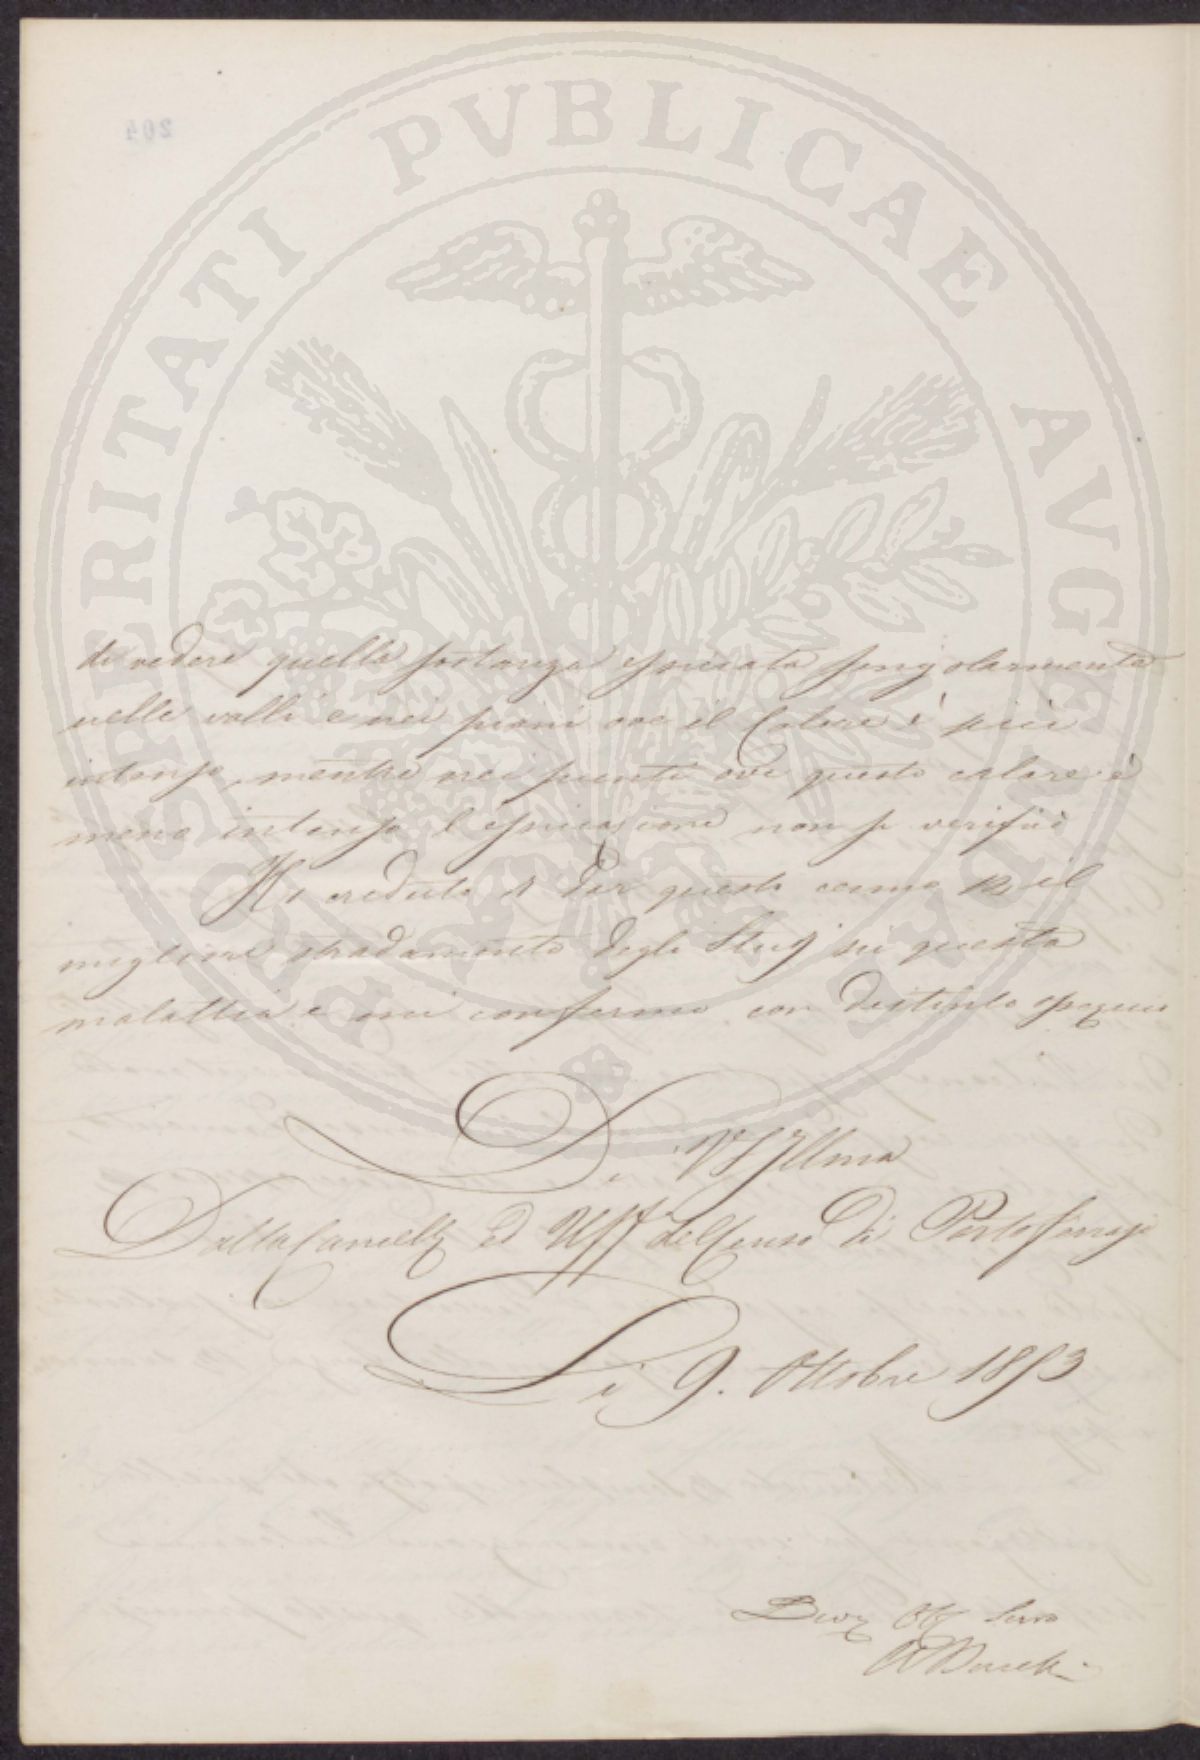 PROSPERITATI PVBLICAE AVGENDAE
204
di vedere quella sostanza essiccata singolarmente
nelle valli e nei piani ove il Calore è più
intenso, mentre nei punti ove questo calore è
meno intenso l'essicazione non si verificò
Ho creduto di dar questo cenno p il
migliore stradamento degli Studj su questa
malattia e mi confermo con distinto ossequio
Di VS Illma
Dalla Cancellz ed Uff del Censo di Portoferrajo
Li 9. Ottobre 1853
Devz Obb Servo